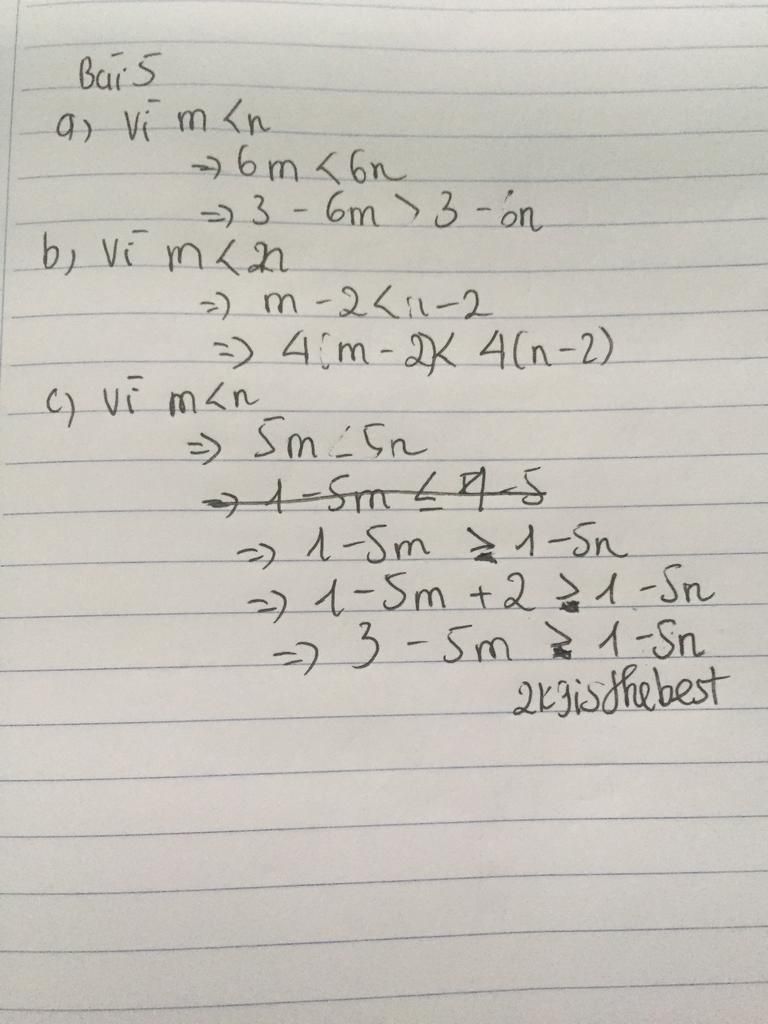 Bài 5
a) Vì m < n
=> 6m < 6n
=> 3 - 6m > 3 - 6n
b) Vì m < n
=> m - 2 < n - 2
=> 4(m - 2) < 4(n - 2)
c) Vì m < n
=> 5m 5n
=> 1 - 5m ≤ 1 - 5
=> 1 - 5m ≥ 1 - 5n
=> 1 - 5m + 2 ≥ 1 - 5n
=> 3 - 5m ≥ 1 - 5n
2k3isthebest